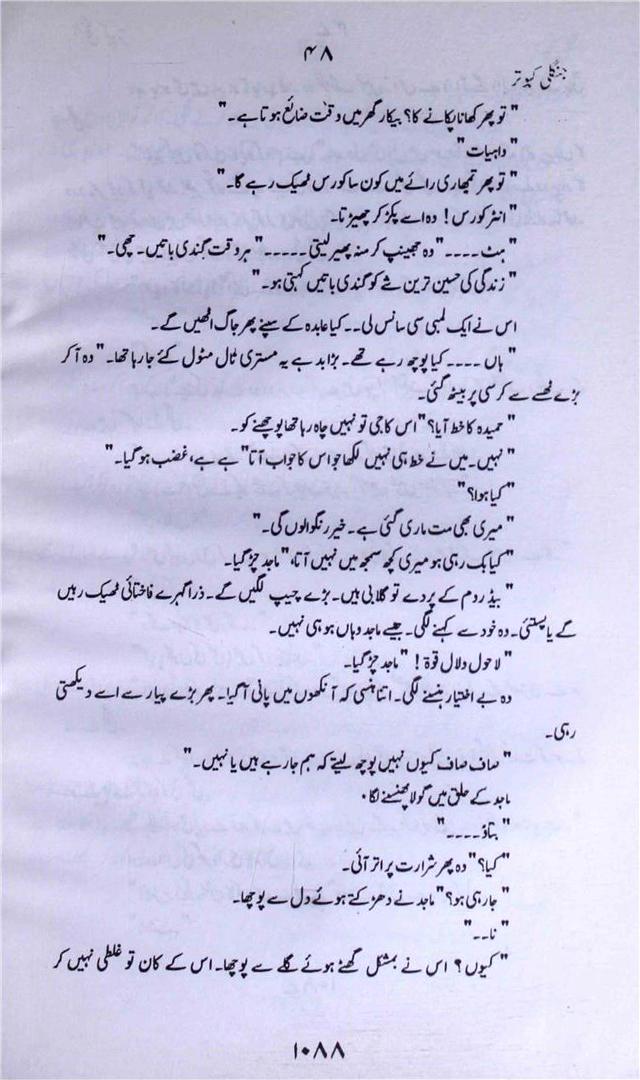 ۴۸
جنگلی کبوتر
" تو پھر کھانا پکانے کا؟ بیکار گھر میں وقت ضائع ہوتا ہے۔"
" واہیات "
" تو پھر تمھاری رائے میں کون سا کورس ٹھیک رہے گا۔"
" انٹر کورس! وہ اسے پکڑ کر چھیڑتا۔
" ہٹ ۔۔۔۔" وہ جھینپ کر منہ پھیر لیتی ۔۔۔۔۔ " ہر وقت گندی باتیں۔ چھی۔"
" زندگی کی حسین ترین شے کو گندی باتیں کہتی ہو۔"
اس نے ایک لمبی سی سانس لی۔۔ کیا عابدہ کے سپنے پھر جاگ اٹھیں گے۔
" ہاں ۔۔۔۔ کیا پوچھ رہے تھے۔ بڑا بد ہے یہ مستری ٹال مٹول کئے جا رہا تھا۔" وہ آ کر
بڑے ٹھسے سے کرسی پر بیٹھ گئی۔
" حمیدہ کا خط آیا؟" اس کا جی تو نہیں چاہ رہا تھا پوچھنے کو۔
" نہیں۔ میں نے خط ہی نہیں لکھا جو اس کا جواب آتا" ہے ہے، غضب ہو گیا۔"
" کیا ہوا؟"
" میری بھی مت ماری گئی ہے۔ خیر رنگوالوں گی۔"
" کیا بک رہی ہو میری کچھ سمجھ میں نہیں آتا،" ماجد چڑ گیا۔
" بیڈ روم کے پردے تو گلابی ہیں۔ بڑے چیپ لگیں گے۔ ذرا گہرے فاختائی ٹھیک رہیں
گے یا پستئی۔ وہ خود سے کہنے لگی۔ جیسے ماجد وہاں ہو ہی نہیں۔
" لاحول ولاقوۃ! " ماجد چڑ گیا۔
وہ بے اختیار ہنسنے لگی۔ اتنا ہنسی کہ آنکھوں میں پانی آ گیا۔ پھر بڑے پیار سے اسے دیکھتی
رہی۔
" صاف صاف کیوں نہیں پوچھ لیتے کہ ہم جا رہے ہیں یا نہیں۔"
ماجد کے حلق میں گولا پھنسنے لگا۔
" بتاؤ ۔۔۔۔"
" کیا؟" وہ پھر شرارت پر اتر آئی۔
" جا رہی ہو؟" ماجد نے دھڑکتے ہوئے دل سے پوچھا۔
" نا۔۔"
" کیوں؟ اس نے بمشکل گھٹے ہوئے گلے سے پوچھا۔ اس کے کان تو غلطی نہیں کر
۱۰۸۸